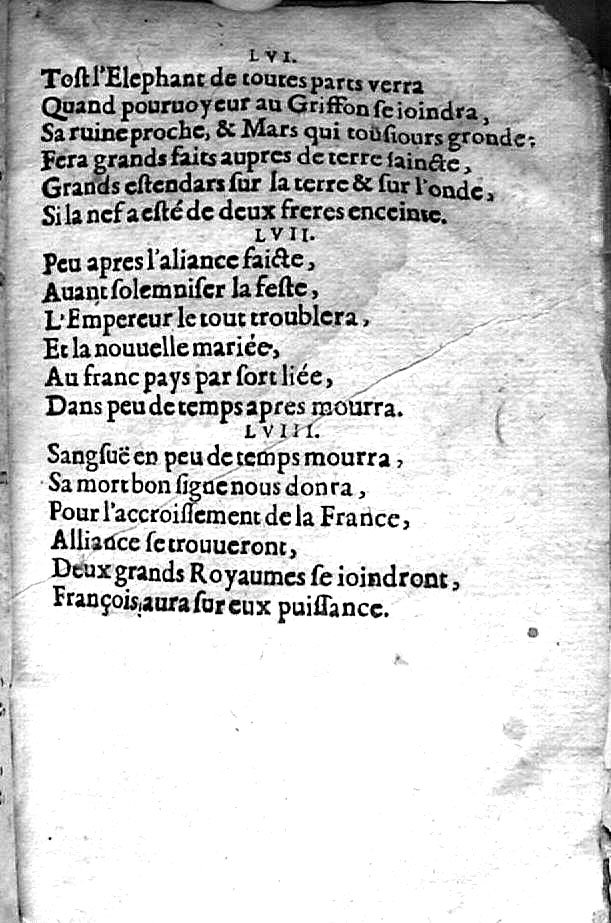 LVI.
Tost l'Elephant de toutes parts verra
Quand pouruoyeur au Griffon se ioindra,
Sa ruine proche, & Mars qui tousiours gronde:
Fera grands faits aupres de terre saincte,
Grands estendars sur la terre & sur l'onde,
Si la nef a esté de deux freres enceinte.
LVII.
Peu apres l'aliance faicte,
Auant solemniser la feste,
L'Empereur le tout troublera,
Et la nouuelle mariée,
Au franc pays par sort liée,
Dans peu de temps apres mourra.
LVIII.
Sangsuë en peu de temps mourra,
Sa mort bon signe nous donra,
Pour l'accroissement de la France,
Alliance se trouueront,
Deux grands Royaumes se ioindront,
François aura sur eux puissance.